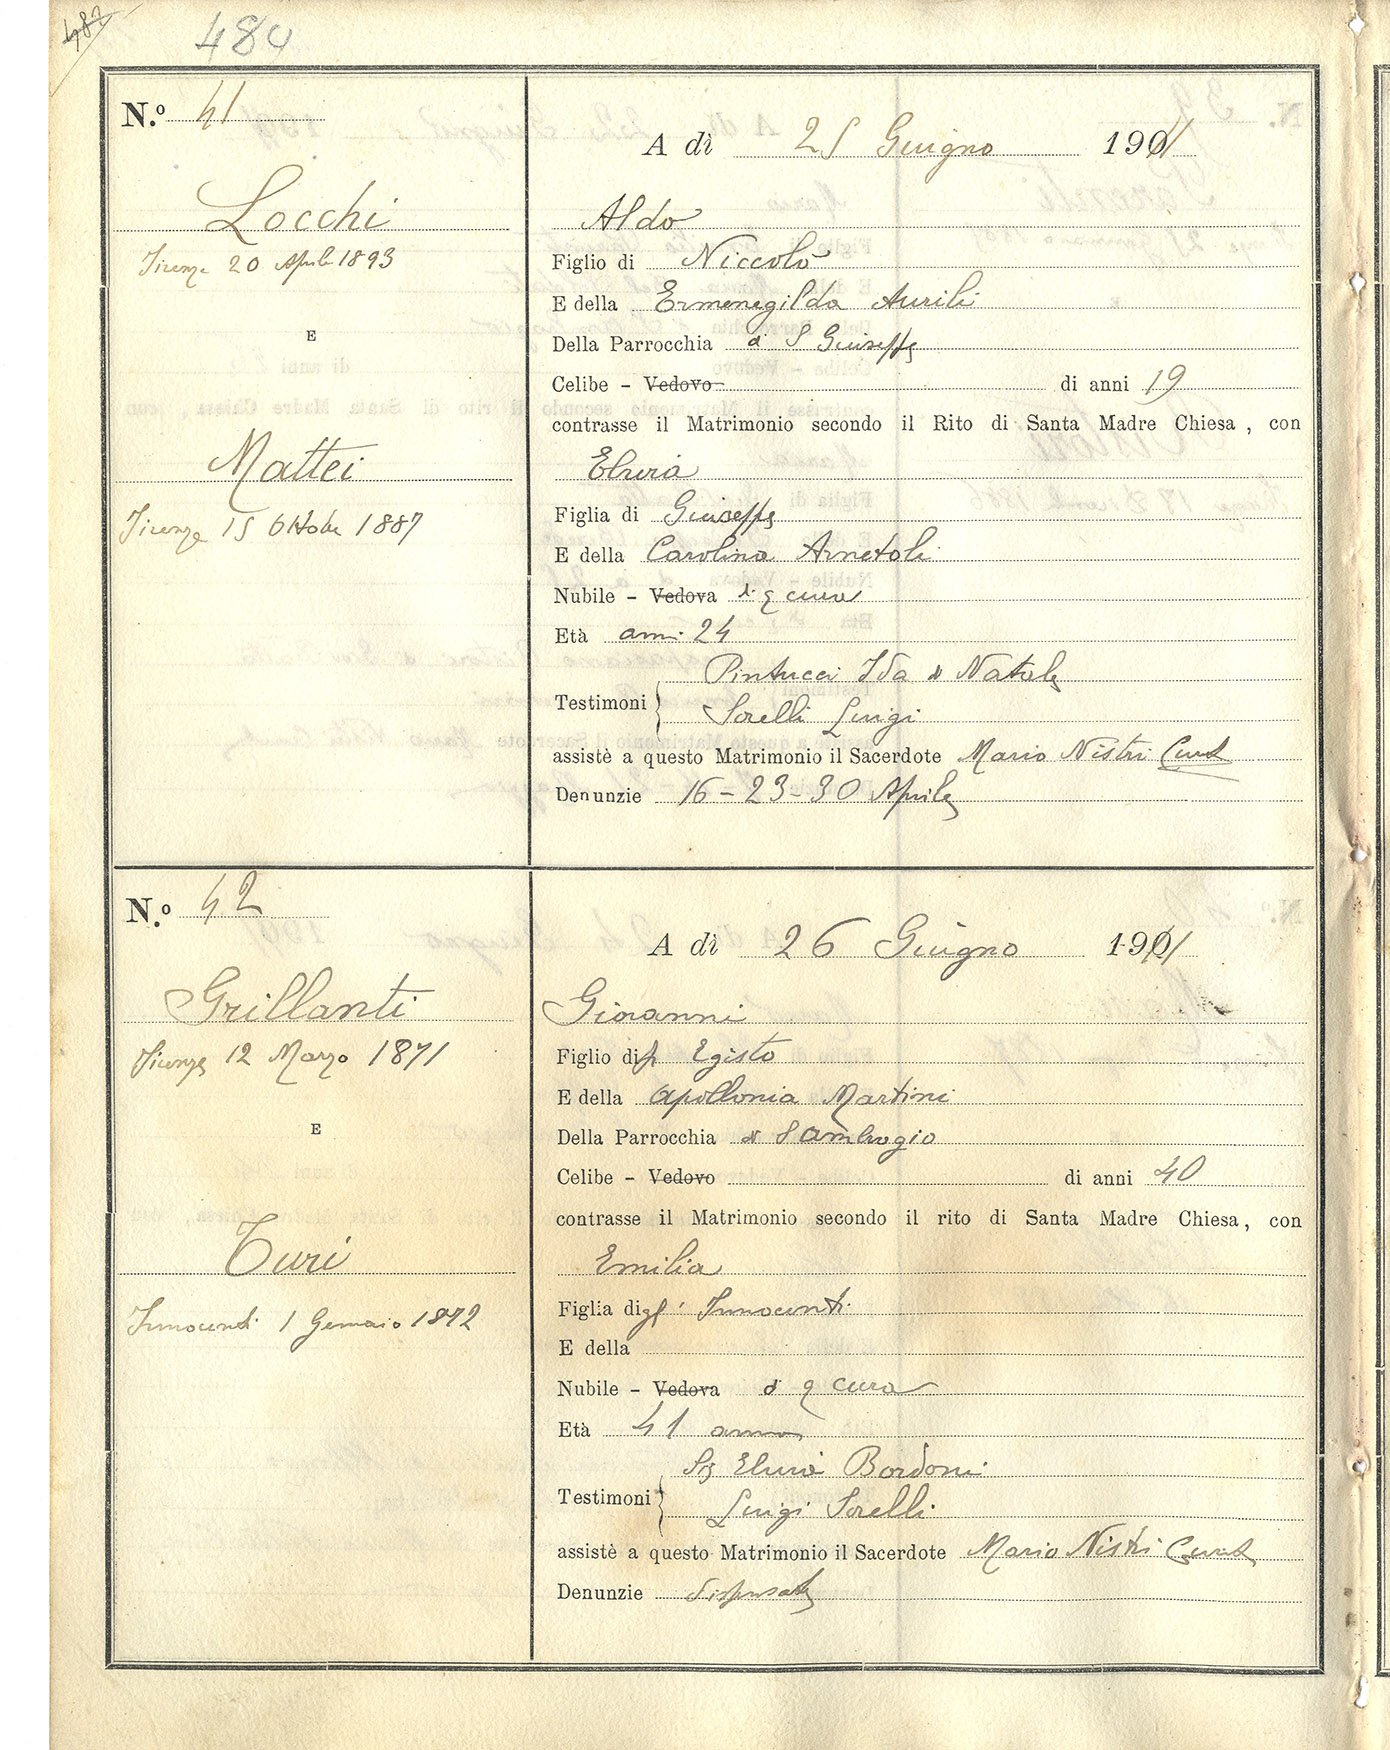 484
N.º 41
Locchi
Firenze 20 Aprile 1893
E
Mattei
Firenze 15 Ottobre 1887
A dì 25 Giugno 1911
Aldo
Figlio di Niccolò
E della Ermenegilda Aurili
Della Parrocchia di S Giuseppe
Celibe – Vedovo di anni 19
contrasse il Matrimonio secondo il Rito di Santa Madre Chiesa, con
Elvira
Figlia di Giuseppe
E della Carolina Arnetoli
Nubile – Vedova di q cura
Età anni 24
Testimoni Pintucci Ida di Natale
Sorelli Luigi
assistè a questo Matrimonio il Sacerdote Mario Nistri Curato
Denunzie 16 – 23 – 30 Aprile
N.º 42
Grillanti
Firenze 12 Marzo 1871
E
Turi
Innocenti 1 Gennaio 1872
A dì 26 Giugno 1911
Giovanni
Figlio di Egisto
E della Apollonia Martini
Della Parrocchia di S Ambrogio
Celibe – Vedovo di anni 40
contrasse il Matrimonio secondo il rito di Santa Madre Chiesa, con
Emilia
Figlia di gl' Innocenti
E della
Nubile – Vedova di q cura
Età 41 anno
Testimoni Elvira Bordoni
Luigi Sorelli
assistè a questo Matrimonio il Sacerdote Mario Nistri Curato
Denunzie dispensate